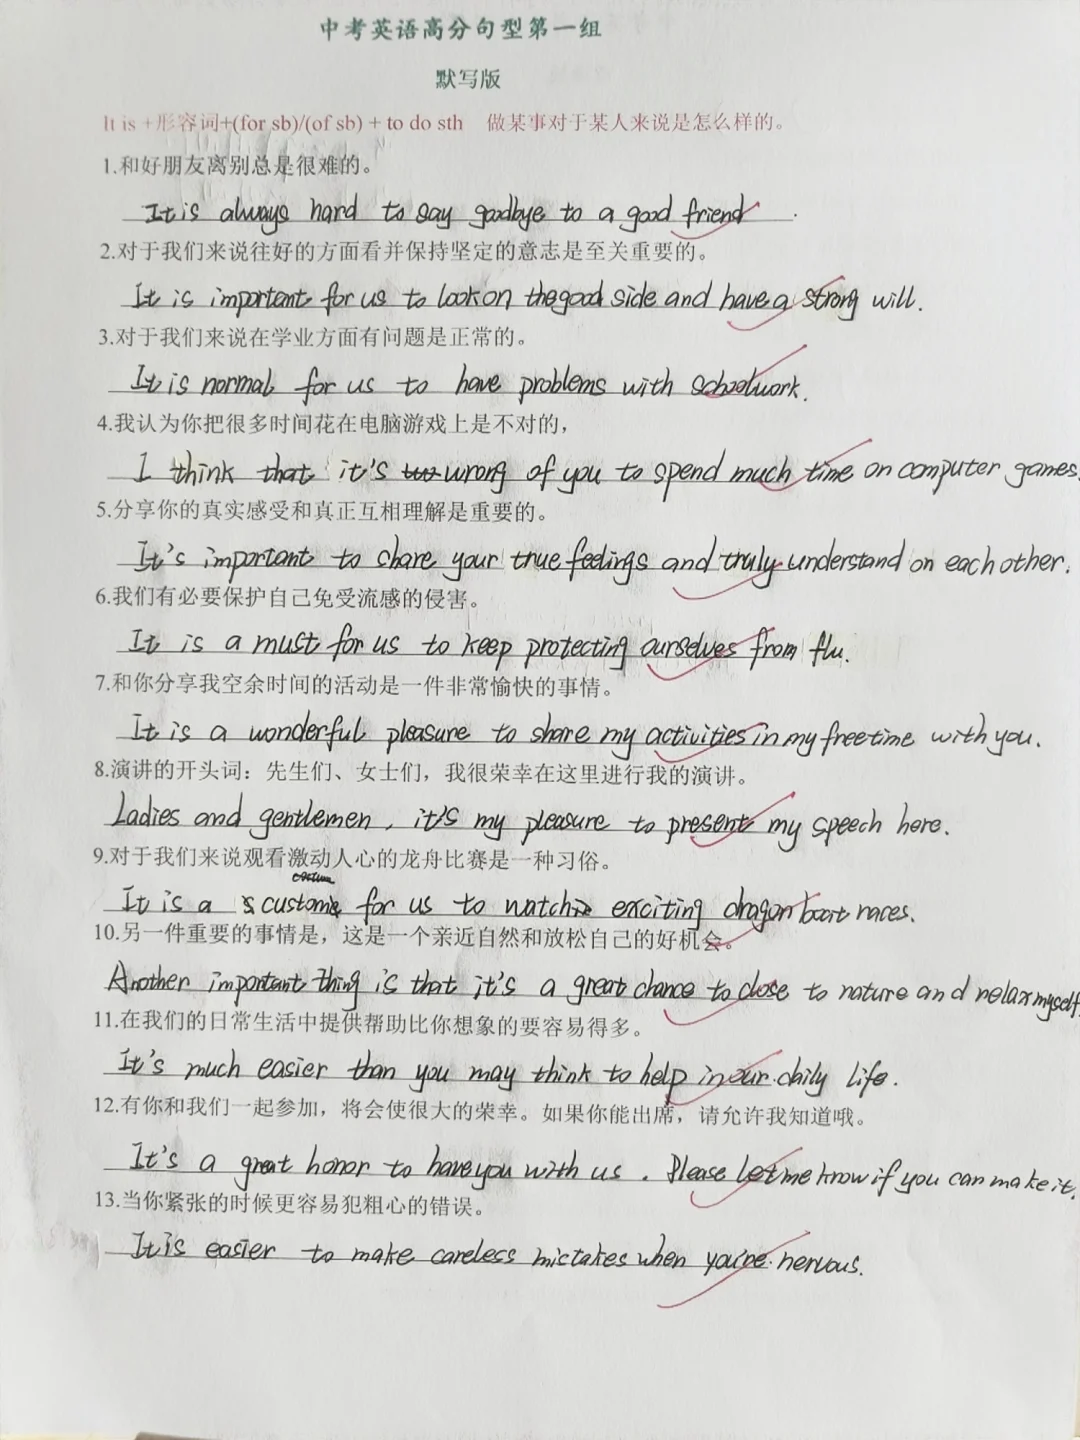 中考英语高分句型第一组
默写版
It is +形容词+(for sb)/(of sb) + to do sth 做某事对于某人来说是怎么样的。
1.和好朋友离别总是很难的。
It is always hard to say goodbye to a good friend .
2.对于我们来说往好的方面看并保持坚定的意志是至关重要的。
It is important for us to look on the good side and have a strong will.
3.对于我们来说在学业方面有问题是正常的。
It is normal for us to have problems with schoolwork.
4.我认为你把很多时间花在电脑游戏上是不对的，
I think that it's wrong of you to spend much time on computer games.
5.分享你的真实感受和真正互相理解是重要的。
It's important to share your true feelings and truly understand on each other.
6.我们有必要保护自己免受流感的侵害。
It is a must for us to keep protecting ourselves from flu.
7.和你分享我空余时间的活动是一件非常愉快的事情。
It is a wonderful pleasure to share my activities in my free time with you.
8.演讲的开头词：先生们、女士们，我很荣幸在这里进行我的演讲。
Ladies and gentlemen, it's my pleasure to present my speech here.
9.对于我们来说观看激动人心的龙舟比赛是一种习俗。
It is a custom for us to watch exciting dragon boat races.
10.另一件重要的事情是，这是一个亲近自然和放松自己的好机会。
Another important thing is that it's a great chance to close to nature and relax myself.
11.在我们的日常生活中提供帮助比你想象的要容易得多。
It's much easier than you may think to help in our daily life.
12.有你和我们一起参加，将会使很大的荣幸。如果你能出席，请允许我知道哦。
It's a great honor to have you with us . Please let me know if you can make it.
13.当你紧张的时候更容易犯粗心的错误。
It is easier to make careless mistakes when you're nervous.